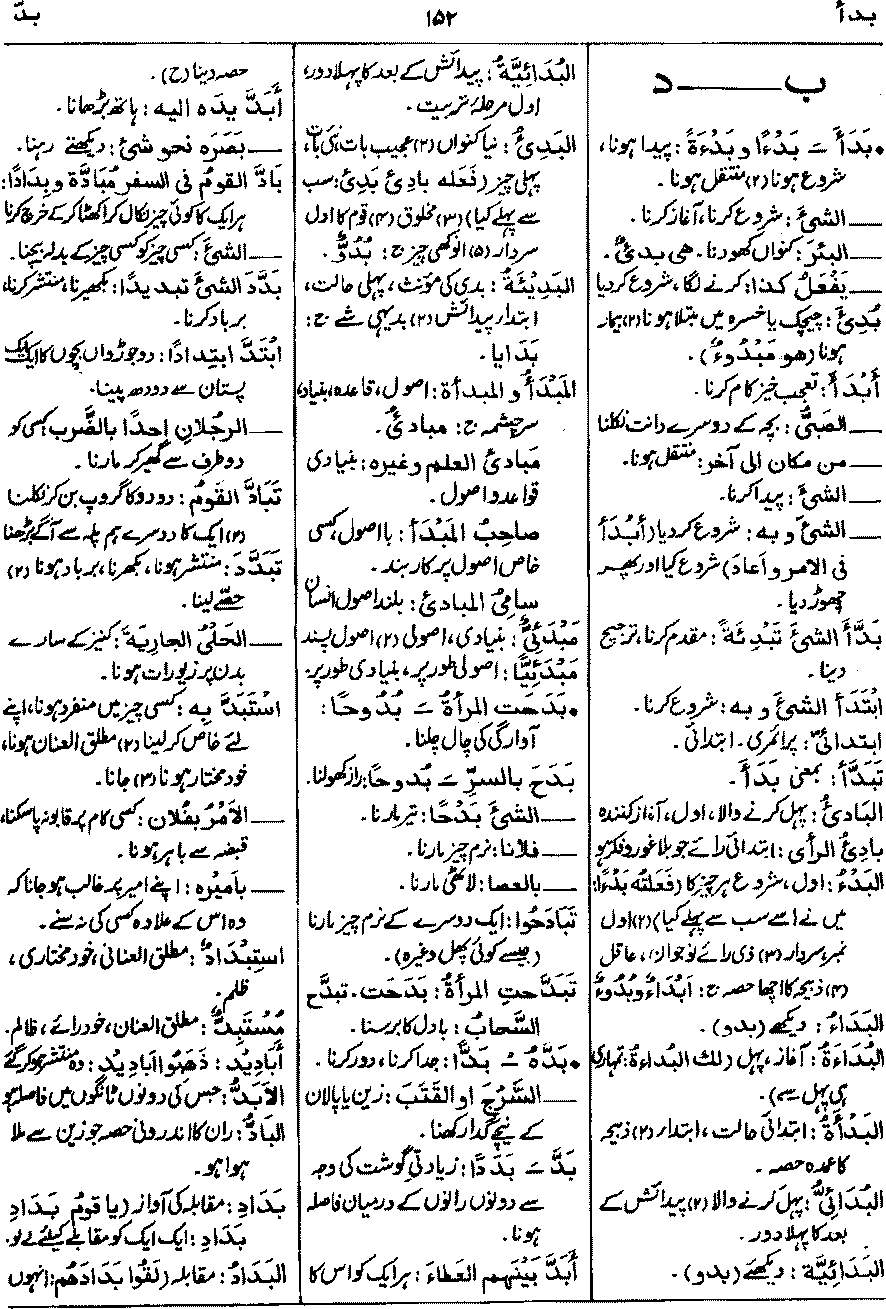 بدأ
۱۵۲
بدّ
ب ——— د
•بَدَأَ ـَ بَدْءًا و بَدْءَةً: پیدا ہونا،
شروع ہونا (۲) منتقل ہونا۔
— الشیٔ: شروع کرنا، آغاز کرنا۔
— البئرَ: کنواں کھودنا۔ ھی بدیٔ۔
— یَفْعَلُ کذا: کرنے لگا، شروع کردیا
بُدِئَ: چیچک یا خسرہ میں مبتلا ہونا (۲) بیمار
ہونا (ھو مَبْدُوءٌ)۔
أَبْدَأَ: تعجب خیز کام کرنا۔
— الصَبِیُّ: بچہ کے دوسرے دانت نکلنا
— من مکان الی آخر: منتقل ہونا۔
— الشیٔ: پیدا کرنا۔
— الشیٔ و بہ: شروع کردیا (أَبْدَأ
فی الامر و اَعادَ) شروع کیا اور پھر
چھوڑ دیا۔
بَدَّأَ الشیٔ تَبْدِئَةً: مقدم کرنا، ترجیح
دینا۔
ابْتَدَأ الشیٔ و بہ: شروع کرنا۔
ابتدائیّ: پرائمری۔ ابتدائی۔
تَبَدَّأَ: بمعنی بَدَأَ۔
البَادِئُ: پہل کرنے والا، اول، آغاز کنندہ
بادِئُ الرأی: ابتدائی رائے جو بلا غور و فکر ہو
البَدْءُ: اول، شروع ہر چیز کا (فَعَلتُه بَدْءًا:
میں نے اسے سب سے پہلے کیا) (۲) اول
نمبر، سردار (۳) ذی رائے نوجوان، عاقل
(۴) ذبیحہ کا اچھا حصہ ج: اَبْدَاءٌ و بُدُوءٌ
البَدَاءُ: دیکھے (بدو)۔
البُدَاءَةُ: آغاز، پہل (لك البُداءةُ: تمہاری
ہی پہل ہے)۔
البَدْأَةُ: ابتدائی حالت، ابتدار (۲) ذبیحہ
کا عمدہ حصہ۔
البُدَائِیُّ: پہل کرنے والا (۲) پیدائش کے
بعد کا پہلا دور۔
البَدَائِیَّة: دیکھے (بدو)۔
البُدَائِیَّةُ: پیدائش کے بعد کا پہلا دور،
اول مرحلۂ تربیت۔
البَدِئُ: نیا کنواں (۲) عجیب بات، نئی بات،
پہلی چیز (فَعَله بادِیٔ بَدِیٔ: سب
سے پہلے کیا) (۳) مخلوق (۴) قوم کا اول
سردار (۵) انوکھی چیز ج: بُدُؤٌ۔
البَدِیْئَةُ: بدی کی مؤنث، پہلی حالت،
ابتدار پیدائش (۲) بدیہی شے ج:
بَدَایا۔
المَبْدَأُ و المبدأة: اصول، قاعدہ، بنیاد،
سرچشمہ ج: مبادئُ۔
مَبادئُ العلم وغیرہ: بنیادی
قواعد و اصول۔
صاحِبُ المَبْدَأ: با اصول، کسی
خاص اصول پر کاربند۔
سامِیُ المبادئ: بلند اصول انسان
مَبْدَئِیٌّ: بنیادی، اصولی (۲) اصول پسند
مَبْدَئِیًّا: اصولی طور پر، بنیادی طور پر۔
•بَدَحَت المرأةُ ـَ بُدُوحًا:
آوارگی کی چال چلنا۔
بَدَحَ بالسرِّ ـَ بُدوحًا: راز کھولنا۔
— الشیٔ بَدْحًا: تیر مارنا۔
— فلانًا: نرم چیز مارنا۔
— بالعصا: لاٹھی مارنا۔
تَبَادَحُوا: ایک دوسرے کے نرم چیز مارنا
(جیسے کوئی پھل وغیرہ)۔
تَبَدَّحتِ المرأةُ: بَدَحَت۔ تبدَّح
السَّحابُ: بادل کا برسنا۔
•بَدَّهُ ـُ بَدًّا: جدا کرنا، دور کرنا۔
— السَّرْجَ او القَتَبَ: زین یا پالان
کے نیچے گدّا رکھنا۔
بَدَّ ـَ بَدَدًا: زیادتی گوشت کی وجہ
سے دونوں رانوں کے درمیان فاصلہ
ہونا۔
أَبَدَّ بَیْنَهم العَطاءَ: ہر ایک کو اس کا
حصہ دینا (ح)۔
أَبَدَّ یدَہ الیه: ہاتھ بڑھانا۔
— بَصَرَہ نحو شیٔ: دیکھتے رہنا۔
بَادَّ القومُ فی السفر مُبَادَّة و بِدادًا:
ہر ایک کا کوئی چیز نکال کر اکھٹا کر کے خرچ کرنا
— الشیٔ: کسی چیز کو کسی چیز کے بدلہ بیچنا۔
بَدَّدَ الشیٔ تبدیدًا: بکھیرنا، منتشر کرنا،
برباد کرنا۔
ابْتَدَّ ابتدادًا: دو جوڑواں بچوں کا ایک ایک
پستان سے دودھ پینا۔
— الرجُلانِ احدًا بالضَّرب: کسی کو
دو طرف سے گھیر کر مارنا۔
تَبَادَّ القَومُ: دو دو کا گروپ بن کر نکلنا
(۲) ایک کا دوسرے ہم پلہ سے آگے بڑھنا
تَبَدَّدَ: منتشر ہونا، بکھرنا، برباد ہونا (۲)
حصے لینا۔
— الحَلْیُ الجاریةَ: کنیز کے سارے
بدن پر زیورات ہونا۔
اسْتَبَدَّ بِه: کسی چیز میں منفرد ہونا، اپنے
لئے خاص کرلینا (۲) مطلق العنان ہونا،
خود مختار ہونا (۳) جانا۔
— الاَمْرُ بفُلان: کسی کام پر قابو نہ پاسکنا،
قبضہ سے باہر ہونا۔
— بامیْرہ: اپنے امیر پر غالب ہوجانا کہ
وہ اس کے علاوہ کسی کی نہ سنے۔
استِبْدَادٌ: مطلق العنانی، خود مختاری،
ظلم۔
مُسْتَبِدٌّ: مطلق العنان، خود رائے، ظالم۔
أَبَادِیْد: ذَهَبُوا اَبَادِیْد: وہ منتشر ہوکر گئے
الاَبَدُّ: جس کی دونوں ٹانگوں میں فاصلہ ہو
البَادُّ: ران کا اندرونی حصہ جو زین سے ملا
ہوا ہو۔
بَدَادِ: مقابلہ کی آواز (یا قومُ بَدَادِ
بَدَادِ: ایک ایک کو مقابلے کیلئے لے لو۔
البَدَادُ: مقابلہ (لَقُوا بَدَادَهُم: انہوں